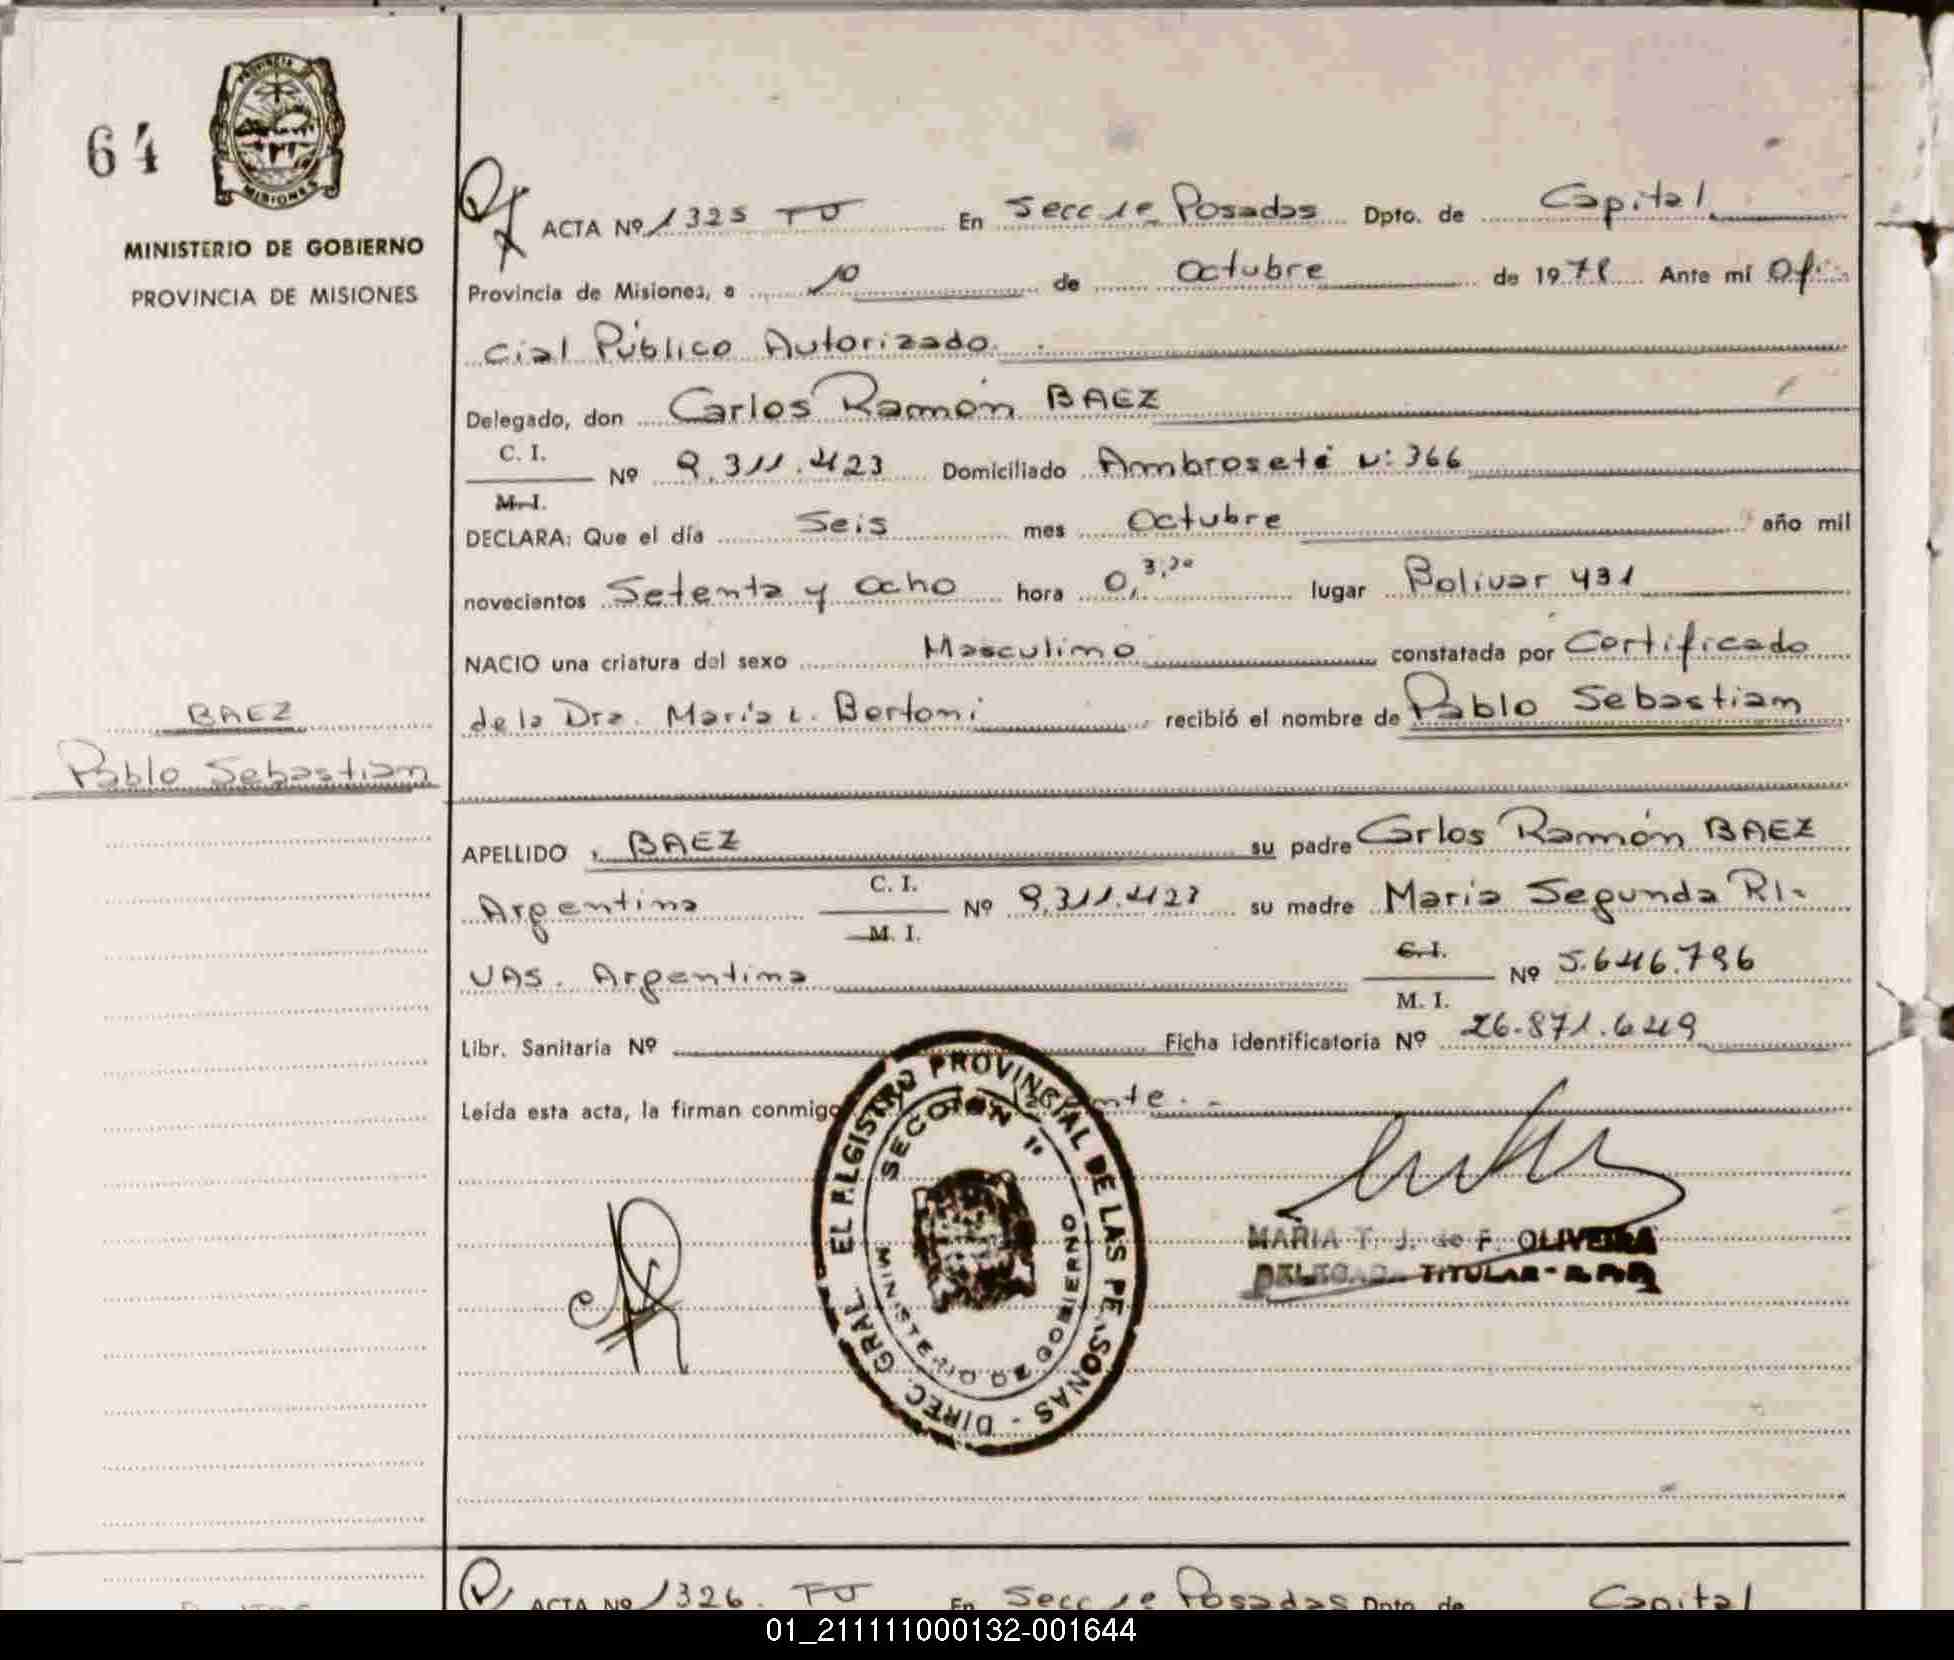 64
PROVINCIA
MISIONES
MINISTERIO DE GOBIERNO
PROVINCIA DE MISIONES
ACTA Nº 1325 TU En Secc 1e Posadas Dpto. de Capital
Provincia de Misiones, a 10 de Octubre de 1978 Ante mí Ofi
cial Público Autorizado
Delegado, don Carlos Ramón BAEZ
C. I.
Nº 9.311.423 Domiciliado Ambroseti Nº 366
M. I.
DECLARA: Que el día Seis mes Octubre año mil
novecientos Setenta y Ocho hora 0,3,20 lugar Bolivar 431
NACIO una criatura del sexo Masculino constatada por Certificado
de la Dra. María L. Bertoni recibió el nombre de Pablo Sebastian
BAEZ
Pablo Sebastian
APELLIDO BAEZ su padre Carlos Ramón BAEZ
Argentino C. I. Nº 9.311.423 su madre María Segunda RI-
M. I.
VAS. Argentina C. I. Nº 5.646.796
M. I.
Libr. Sanitaria Nº Ficha identificatoria Nº 26.871.649
Leída esta acta, la firman conmigo
DIREC. GRAL. EL REGISTRO PROVINCIAL DE LAS PERSONAS
SECCION 1º
MINISTERIO DE GOBIERNO
MARIA T. J. de F. OLIVEIRA
DELEGADA TITULAR - R.P.P.
ACTA Nº 1326. TU En Secc 1e Posadas Dpto. de Capital
01_211111000132-001644